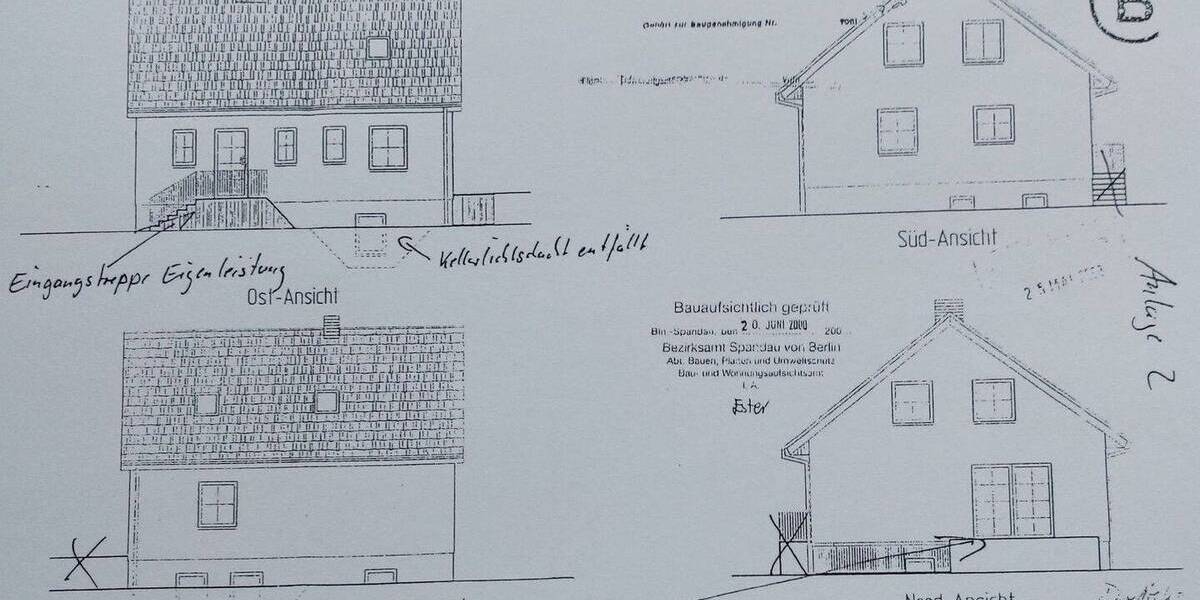 Gehört zur Baugenehmigung Nr. vom
B
Süd-Ansicht
Eingangstreppe Eigenleistung
Kellerlichtschacht entfällt
Ost-Ansicht
25 MAI 2000
Anlage 2
Bauaufsichtlich geprüft
Bln.-Spandau, den 20. JUNI 2000 200
Bezirksamt Spandau von Berlin
Abt. Bauen, Planen und Umweltschutz
Bau- und Wohnungsaufsichtsamt
I. A.
Ester
Nord-Ansicht